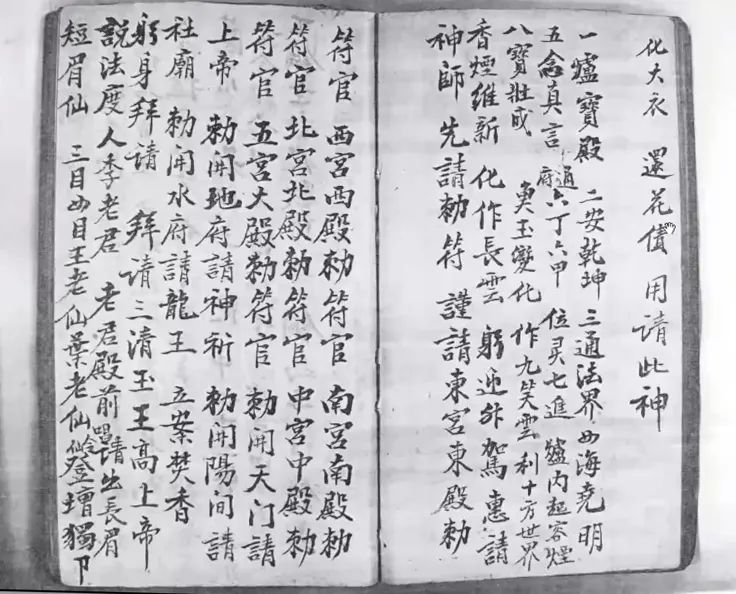 化大衣 還花債 用請此神
一爐寶殿 二安乾坤 三通法界 四海堯明
五念真言 通府六丁六甲 位灵七進 爐内起容煙
八寶壯成 奧玉變化 作九笑雲 利十方世界
香煙維新 化作長雲 躬迎外駕 惠請
神師 先請勅符 謹請東宮東殿勅
符官 西宮西殿勅符官 南宮南殿勅
符官 北宮北殿勅符官 中宮中殿勅
符官 五宮大殿勅符官 勅開天门請
上帝 勅開地府請神祈 勅開陽间請
社廟 勅開水府請龍王 立案焚香
躬身拜請 拜請三清玉王高上帝
説法度人李老君 老君殿前唱請出長眉
短眉仙 三目四目王老仙 葉老仙 登壇獨下